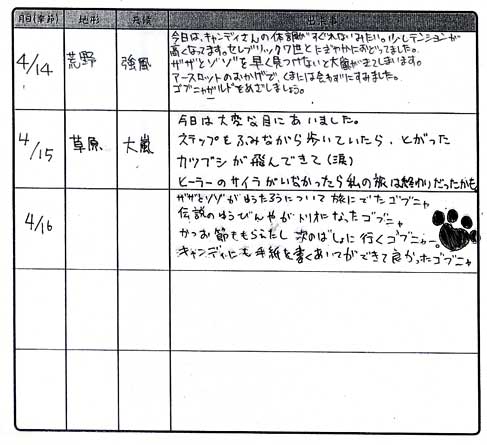 月日(季節) 地形 天候 出来事
4/14 荒野 強風
今日は、キャンディさんの体調がすぐれないみたい。少しテンションが
高くなってます。セレブリックワ世とにぎやかにおどってました。
ザザとゾゾを早く見つけないと大嵐がきてしまいます。
アースロットのおかげで、くまには会わずにすみました。
ゴブニャガルドをめざしましょう。
4/15 草原 大嵐
今日は大変な目にあいました。
ステップをふみながら歩いていたら、とがった
カツブシが飛んできて(涙)
ヒーラーのサイラがいなかったら私の旅は終わりだったかも
4/16
ザザとゾゾがゆうたろうについて旅にでたゴブニャ
伝説のゆうびんやがトリオになったゴブニャ
かつお節ももらえたし 次のばしょに行くゴブニャー。
キャンディにも手紙を書くあいてができて良かったゴブニャ